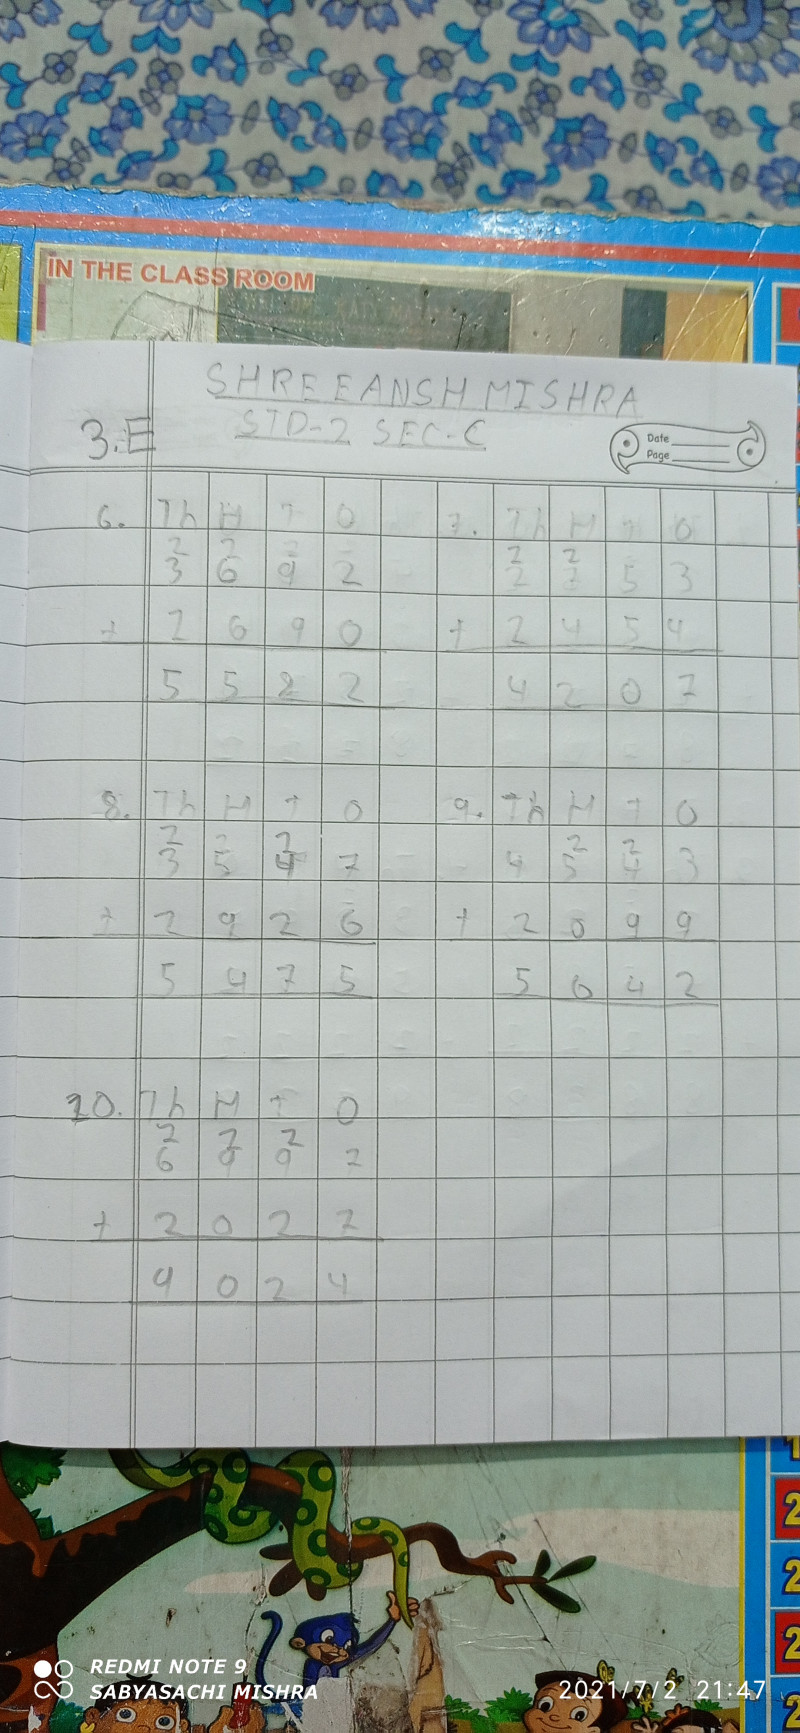 IN THE CLASS ROOM
SHREEANSH MISHRA
3.E STD-2 SEC-C
Date
Page
6. Th H T O 7. Th H T O
1 1
3 6 9 2 1 7 5 3
+ 1 8 9 0 + 2 4 5 4
5 5 8 2 4 2 0 7
8. Th H T O 9. Th H T O
1 1 1 1
3 5 4 7 5 4 3
+ 1 9 2 8 + 2 0 9 9
5 4 7 5 5 6 4 2
10. Th H T O
1 1 1
6 9 9 7
+ 2 0 2 7
9 0 2 4
REDMI NOTE 9
SABYASACHI MISHRA
2021/7/2 21:47